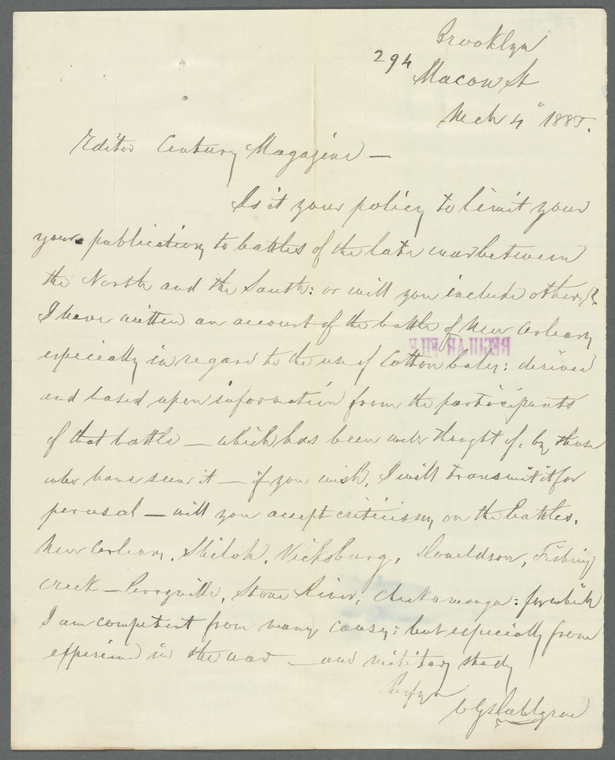 Brooklyn
294
Macon St
Mch 4" 1885.
Editor Century Magazine —
Is it your policy to limit your
your publications to battles of the late war between
the North and the South: or will you include others?
I have written an account of the battle of New Orleans
REGULAR FILE
especially in regard to the use of Cotton bales: derived
and based upon information from the participants
of that battle — which has been well thought of, by those
who have seen it — if you wish, I will transmit it for
perusal — will you accept criticisms on the battles,
New Orleans, Shiloh, Vicksburg, Donaldson, Fishing
creek — Perryville, Stone River, Chickamauga: for which
I am competent from many causes: but especially from
experience in the war — and military study
C G Dahlgren